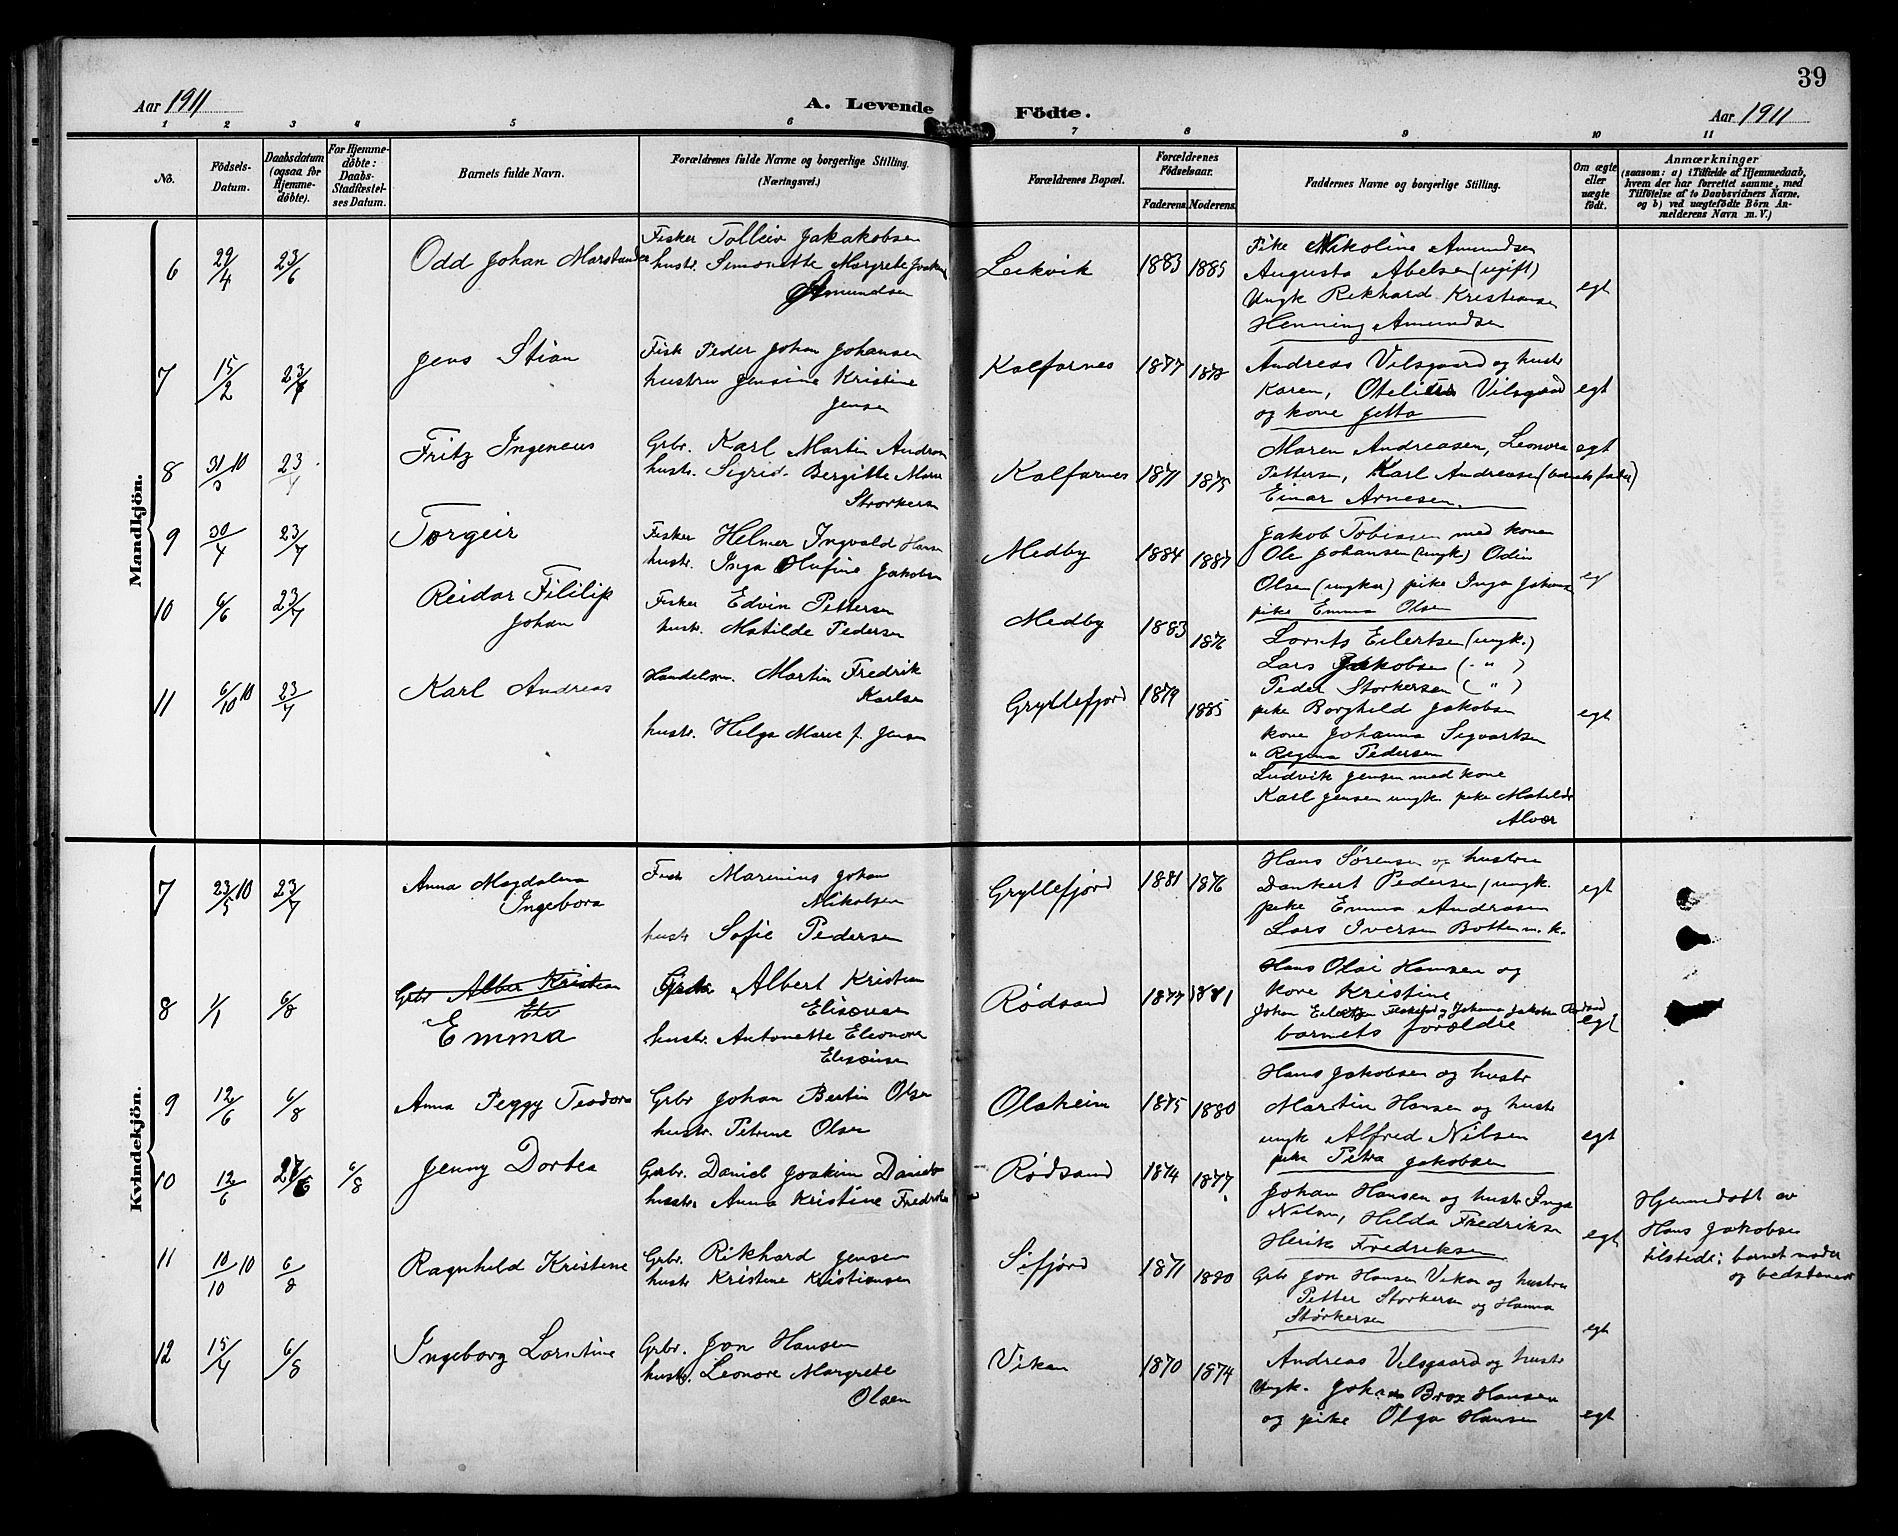 39
Aar 1911
A. Levende Födte.
Aar 1911
1 2 3 4 5 6 7 8 9 10 11
Nö.
Födsels-Datum.
Daabsdatum (ogsaa for Hjemmedöbte).
For Hjemmedöbte: Daabs-Stadfæstelses Datum.
Barnets fulde Navn.
Forældrenes fulde Navne og borgerlige Stilling.
(Næringsvei.)
Forældrenes Bopæl.
Forældrenes Födselsaar.
Faderens. Moderens.
Faddernes Navne og borgerlige Stilling.
Om ægte eller uægte födt.
Anmærkninger
(saasom: a) i Tilfælde af Hjemmedaab, hvem der har forrettet samme, med Tilföielse af to Daabsvidners Navne, og b) ved uægtefödte Börn Anmelderens Navn m. V.)
Mandkjön.
6 29/4 23/6 Odd Johan Marstander
Fisker Tolleiv Jakakobsen
hustr. Simonette Margrete Joakim
Amundsen
Leikvik 1883 1885
Pike Nikoline Amundsen
Augusta Abelsen (ugift)
Ungk Rikhard Kristiansen
Henning Amundsen
egt
7 15/2 23/7 Jens Stian
Fisk Peder Johan Johansen
hustru Jensine Kristine
Jensen
Kalfarnes 1877 1878
Andreas Vilsgaard og hustr
Karen, Vilsgaard
og kone Jetta
egt
8 31/3 10 23/7 Fritz Ingeneus
Grbr. Karl Martin Andreas
hustr. Sigrid Bergitte Marie
Storkersen
Kalfarnes 1871 1875
Maren Andreasen, Leonora
Pettersen, Karl Andreasen (barnets fader)
Einar Arnesen.
egt
9 30/4 23/7 Torgeir
Fisker Helmer Ingvald Hansen
hustr. Inga Olufine Jakobsen
Medby 1884 1887
Jakob Tobiasen med kone
Ole Johansen (ungk) Odin
Olsen (ungkar) pike Inga Johans
pike Emma Olsen
egt
10 6/6 23/7 Reidar Fililip
Johan
Fisker Edvin Pettersen
hustr. Matilde Pedersen
Medby 1883 1876
Lornts Eilertsen (ungk.)
Lars Jakobsen (- " )
Peder Storkersen ( " )
pike Borghild Jakobsen
kone Johanna Sigvartsen
" Regina Pedersen
11 6/10 10 23/7 Karl Andreas
Handelsm. Martin Fredrik
Karlsen
hustr. Helga Marie f. Jensen
Gryllefjord 1879 1885
egt
Ludvik Jensen med kone
Karl Jensen ungk. pike Matilde
Alvær
Kvindekjön.
7 23/5 10 23/7 Anna Magdalena
Ingebora
Fisk Marenius Johan
Nikolsen
hustr Sofie Pedersen
Gryllefjord 1881 1876
Hans Sørensen og hustru
Dankert Pedersen (ungk.
pike Emma Andrasen
Lars Iversen Botten m. k.
egt
8 1/1 6/8 Grbr Alber Kristian
Eli
Emma
Albert Kristian
Elisæusen
hustr. Antonette Eleonora
Elisæusen
Rødsand 1877 1881
Hans Olai Hansen og
kone Kristine
barnets forældre
egt
9 12/6 6/8 Anna Peggy Teodora
Grbr Johan Bertin Olsen
hustr. Petrine Olsen
Olaheim 1875 1880
Hans Jakobsen og hustr
Martin Hansen og hustr
ungk Alfred Nilsen
pike Petra Jakobsen
egt
10 12/6 27/6 6/8 Jenny Dortea
Grbr. Daniel Joakim Daniels
hustr. Anna Kristine Fredriks
Rødsand 1874 1877
Johan Hansen og hustr Inga
Nilsen, Hilda Fredriksen
Henrik Fredriksen
egt
Hjemmedøbt av
Hans Jakobsen
tilstede: barnets moder
og bedstemor
11 10/10 10 6/8 Ragnhild Kristine
Grbr. Rikhard Jensen
hustr Kristine Kristiansen
Sifjord 1871 1880
Grbr Jon Hansen Vikan og hustru
Petter Storkersen og Hanna
Størkersen
egt
12 15/4 6/8 Ingeborg Lorntine
Grbr. Jon Hansen
hustr. Leonore Margrete
Olsen
Vikan 1870 1874
Andreas Vilsgaard og hustr
Ungk. Johan Brox Hansen
og pike Olga Hansen
egt